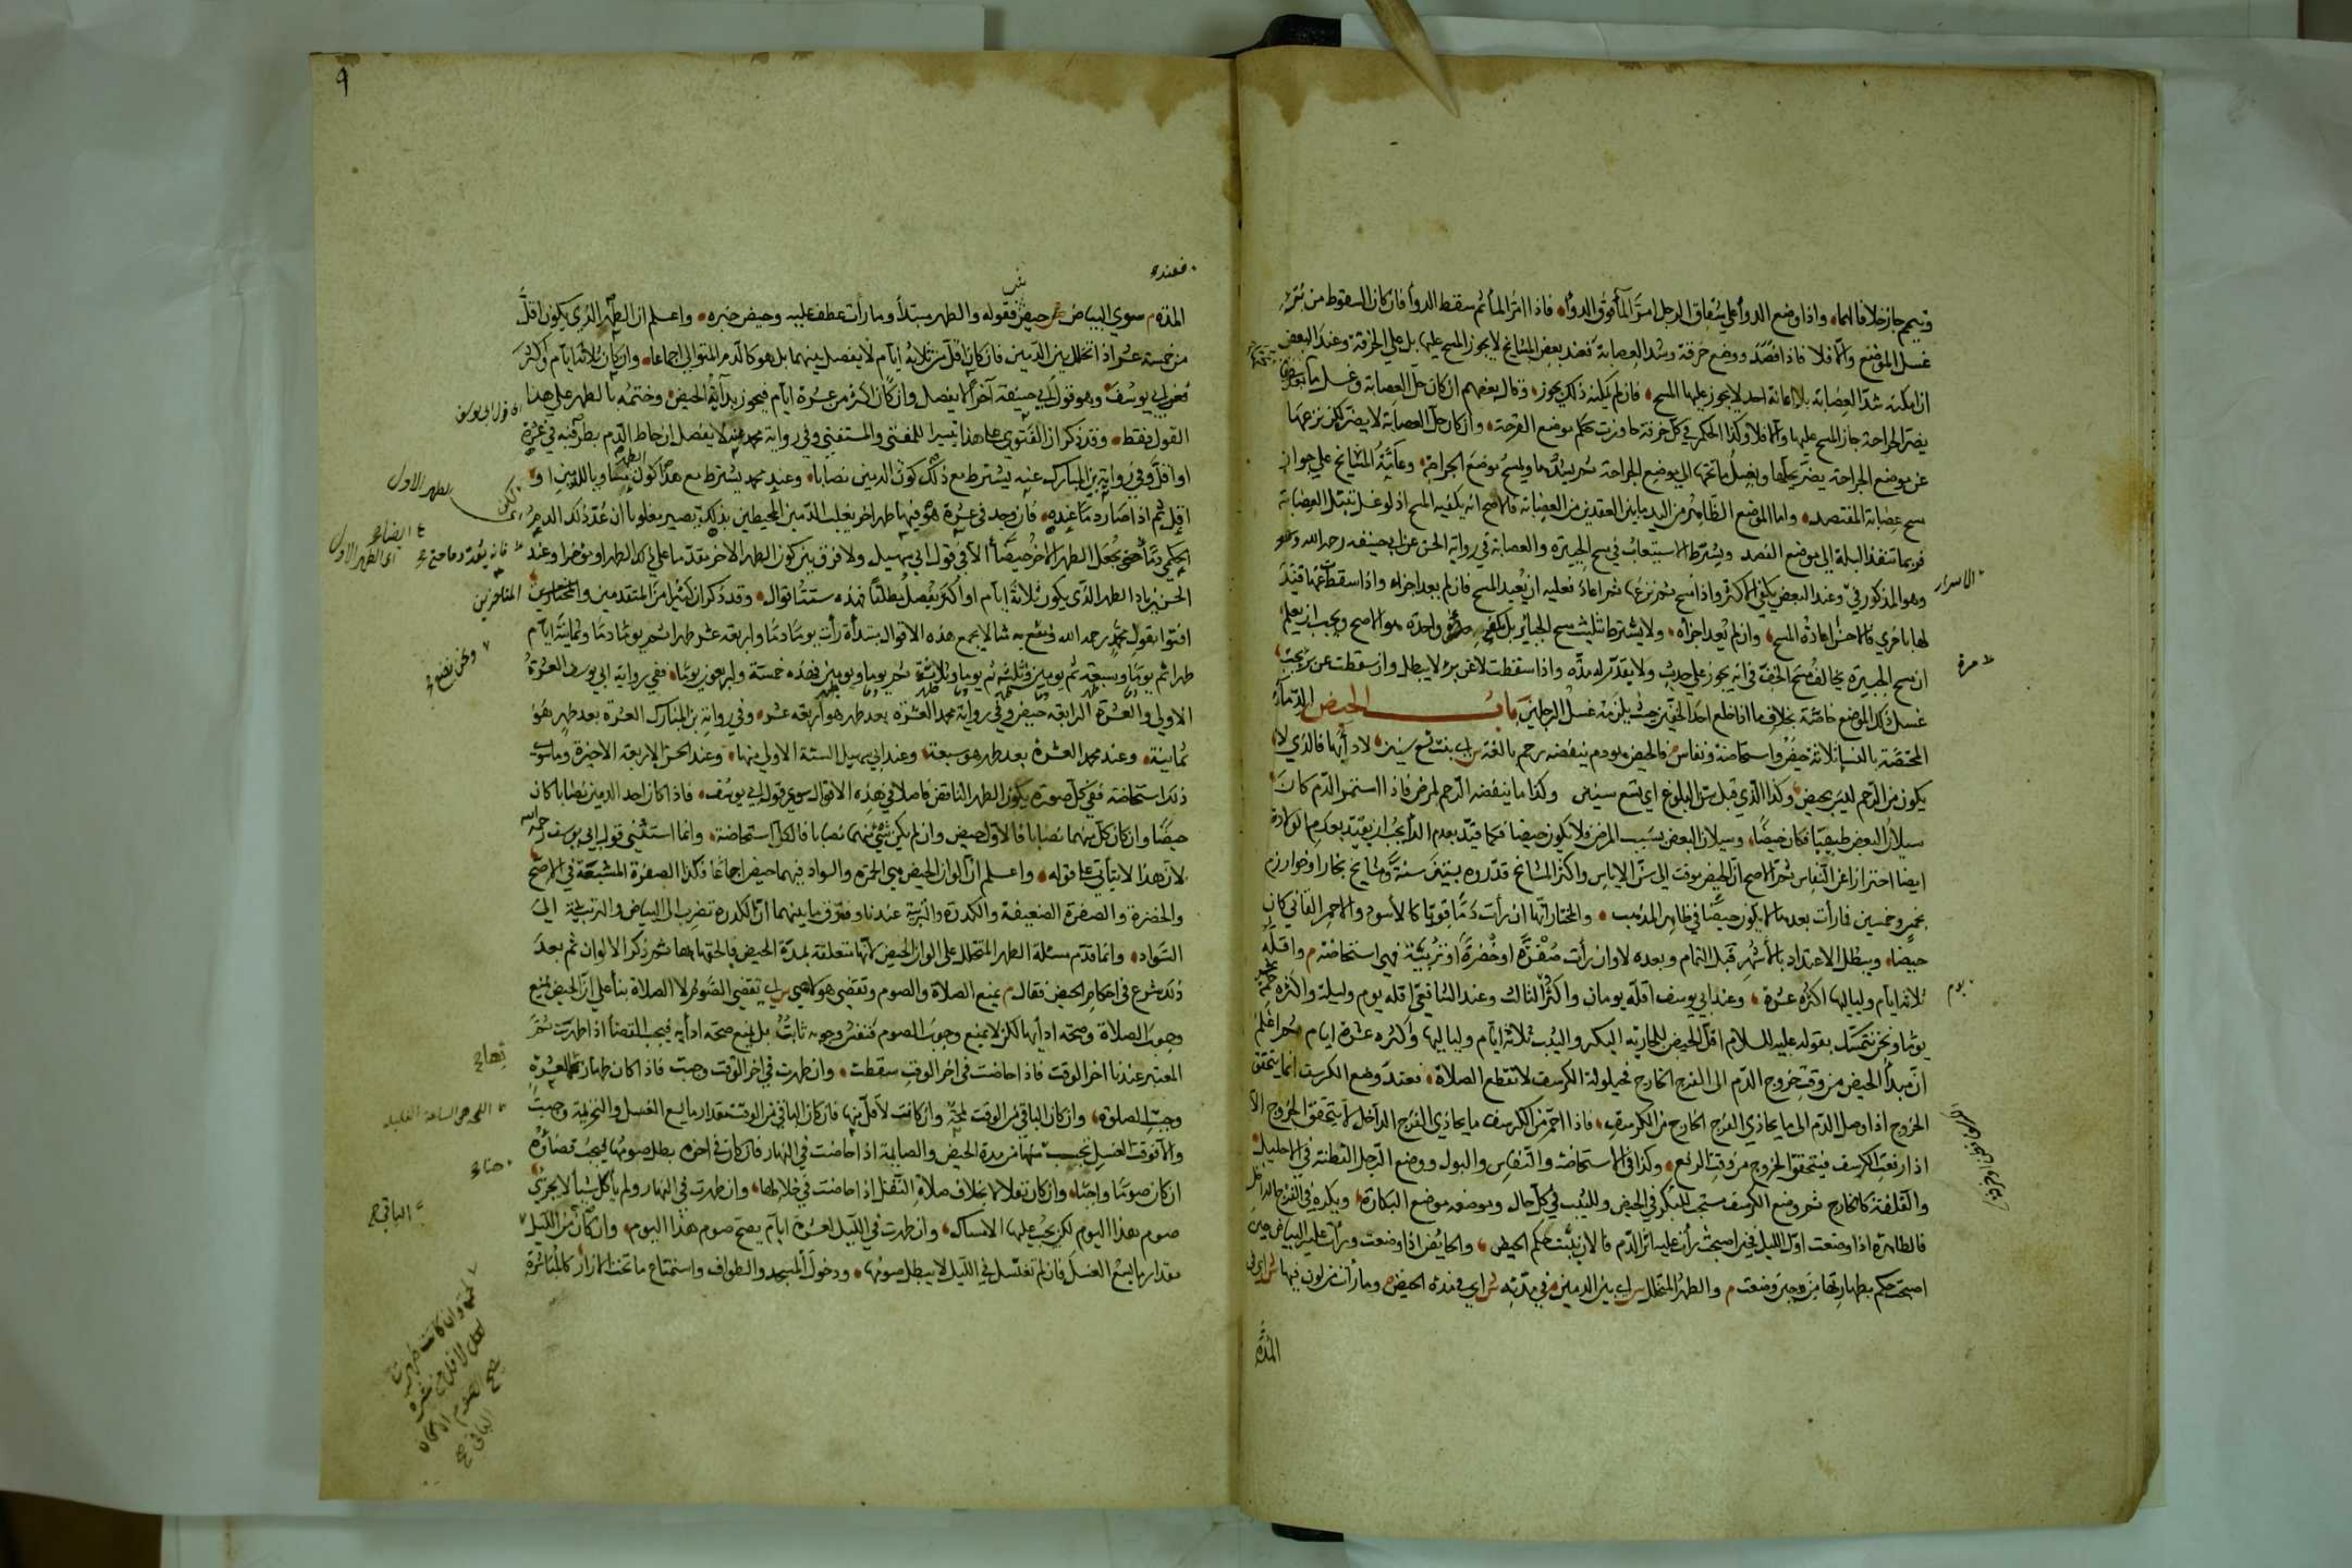 وتيمم جاز خلافا لهما واذا وضع الدواء على شقاق الرجل امر الماء فوق الدواء فاذا امر الماء ثم سقط الدواء فان كان السقوط من برء
غسل الموضع والا فلا فاذا فصد ووضع خرقة وشد العصابة فعند بعض المشايخ لا يجوز المسح عليها بل على الخرقة وعند البعض
ان امكنه شد العصابة بلا اعانة احد لا يجوز عليها المسح فان لم يمكنه ذلك يجوز وقال بعضهم ان كان حل العصابة وغسل ما تحتها
يضر الجراحة جاز المسح عليها والا فلا وكذا الحكم في كل خرقة جاوزت موضع القرحة وان كان حل العصابة لا يضر لكن نزعها
عن موضع الجراحة يضر يحلها ويغسل ما تحتها الى موضع الجراحة ثم يشدها ويمسح موضع الجراحة وعامة المشايخ على جواز
مسح عصابة المفتصد واما الموضع الظاهر من اليد ما بين العقدتين من العصابة فالاصح انه يكفيه المسح اذ لو غسل تبتل العصابة
فربما تنفذ البلة الى موضع الفصد ويشترط الاستيعاب في مسح الجبيرة والعصابة في رواية الحسن عن ابي حنيفة رحمه الله وهو
وهو المذكور في وعند البعض يكفي الاكثر واذا مسح ثم نزعها ثم اعادها فعليه ان يعيد المسح فان لم يعد اجزاه واذا سقطت عنها فبدلها
لها باخرى فالاحسن اعادة المسح وان لم يعد اجزأه ولا يشترط تثليث مسح الجبائر بل يكفي مرة واحدة هو الاصح ويجب ان يعلم
ان مسح الجبيرة يخالف مسح الخف في انه يجوز على حدث ولا يقدر له مدة واذا سقطت لا عن برء لا يبطل وان سقطت عن برء يجب
غسل ذلك الموضع خاصة بخلاف ما اذا خلع احد الخفين حيث يلزمه غسل الرجلين باب الحيض الدماء
المختصة بالنساء ثلاثة حيض واستحاضة ونفاس فالحيض هو دم ينفضه رحم بالغة اي بنت تسع سنين لا داء بها فالذي لا
يكون من الرحم ليس بحيض وكذا الذي قبل سن البلوغ اي تسع سنين وكذا ما ينفضه الرحم لمرض فاذا استمر الدم كان
سيلان البعض طبيعيا فكان حيضا وسيلان البعض بسبب المرض فلا يكون حيضا فكما قيد بعدم الداء يجب ان يقيد بعدم الولادة
ايضا احترازا عن النفاس ثم الاصح ان الحيض موقت الى سن الاياس واكثر المشايخ قدروه بستين سنة ومشايخ بخارا وخوارزم
بخمس وخمسين فما رأت بعدها لا يكون حيضا في ظاهر المذهب والمختار انها ان رأت دما قويا كالاسود والاحمر القاني كان
حيضا ويبطل الاعتداد بالاشهر قبل التمام وبعده لا وان رأت صفرة او خضرة او تربية فهي استحاضة م واقله
ثلاثة ايام ولياليها واكثره عشرة وعند ابي يوسف اقله يومان واكثر الثالث وعند الشافعي اقله يوم وليلة واكثره خمسة عشر
يوما ونحن نتمسك بقوله عليه السلام اقل الحيض للجارية البكر والثيب ثلاثة ايام ولياليها واكثره عشرة ايام ثم اعلم
ان مبدأ الحيض من وقت خروج الدم الى الفرج الخارج فحيلولة الكرسف لا تقطع الصلاة فعند وضع الكرسف انما يتحقق
الخروج اذا وصل الدم الى ما يحاذي الفرج الخارج من الكرسف فاذا احمر من الكرسف ما يحاذي الفرج الداخل لا يتحقق الخروج الا
اذا رفعت الكرسف فيتحقق الخروج من وقت الرفع وكذا في الاستحاضة والنفاس والبول ووضع الرجل القطنة في الاحليل
والقلفة كالخارج ثم وضع الكرسف مستحب للبكر في الحيض وللثيب في كل حال وموضعه موضع البكارة ويكره في الفرج الداخل
فالطاهرة اذا وضعت اول الليل فحين اصبحت رأت عليه اثر الدم فالان يثبت حكم الحيض والحايض اذا وضعت ورأت عليه البياض حين
اصبحت حكم بطهارتها من حين وضعت م والطهر المتخلل اي بين الدمين في مدته ش اي في مدة الحيض وما رأت من لون فيها ش اي في
المدة
الاسرار
مرة
يوم
٩
فعنده
المدة م سوى البياض حيض فقوله والطهر مبتدأ وما رأت عطف عليه وحيض خبره واعلم ان الطهر الذي يكون اقل
من خمسة عشر اذا تخلل بين الدمين فان كان اقل من ثلاثة ايام لا يفصل بينهما بل هو كالدم المتوالي اجماعا وان كان ثلاثة ايام او اكثر
فعن ابي يوسف وهو قول ابي حنيفة آخرا لا يفصل وان كان اكثر من عشرة ايام فيجوز بداية الحيض وختمه بالطهر على هذا
القول فقط وقد ذكر ان الفتوى على هذا تيسيرا للمفتي والمستفتي وفي رواية محمد عنه لا يفصل ان احاط الدم بطرفيه في عشرة
او اقل وفي رواية ابن المبارك عنه يشترط مع ذلك كون الدمين نصابا وعند محمد يشترط مع هذا كون الطهر مساويا للدمين او
اقل ثم اذا صار دما عنده فان وجد في عشرة هو فيها طهر اخر يغلب الدمين المحيطين به لكنه يصير مغلوبا ان عد ذلك الدم
الحكمي دما حتى يجعل الطهر الاخر حيضا الا في قول ابي سهيل ولا فرق بين كون الطهر الاخر مقدما على ذلك الطهر او مؤخرا وعند
الحسن بن زياد الطهر الذي يكون ثلاثة ايام او اكثر يفصل مطلقا فهذه ستة اقوال وقد ذكر ان كثيرا من المتقدمين والمتاخرين
افتوا بقول محمد رحمه الله ونضع به مثالا يجمع هذه الاقوال مبتدأة رأت يوما دما واربعة عشر طهرا ثم يوما دما وثمانية ايام
طهرا ثم يوما وسبعة ثم يومين وثلاثة ثم يوما وثلاثة ثم يوما ويومين فهذه خمسة واربعون يوما ففي رواية ابي يوسف العشرة
الاولى والعشرة الرابعة حيض وفي رواية محمد العشرة بعد طهر هو اربعة عشر وفي رواية ابن المبارك العشرة بعد طهر هو
ثمانية وعند محمد العشرة بعد طهر هو سبعة وعند ابي سهيل الستة الاولى منها وعند الحسن الاربعة الاخيرة وما سوى
ذلك استحاضة ففي كل صورة يكون الطهر الناقص فاصلا في هذه الاقوال سوى قول ابي يوسف فاذا كان احد الدمين نصابا كان
حيضا وان كان كل منهما نصابا فالاول حيض وان لم يكن شئ منهما نصابا فالكل استحاضة وانما استثني قول ابي يوسف رحمه الله
لان هذا لا يتأتى على قوله واعلم ان الوان الحيض هي الحمرة والسواد فهما حيض اجماعا وكذا الصفرة المشبعة في الاصح
والخضرة والصفرة الضعيفة والكدرة والتربية عندنا وفرق ما بينهما ان الكدرة تضرب الى البياض والتربية الى
السواد وانما قدم مسئلة الطهر المتخلل على الوان الحيض لانها متعلقة بمدة الحيض فالحقها بها ثم ذكر الالوان ثم بعد
ذلك شرع في احكام الحيض فقال م يمنع الصلاة والصوم وتقضي هو لا هي اي تقضي الصوم لا الصلاة بناء على ان الحيض يمنع
وجوب الصلاة وصحة ادائها لكن لا يمنع وجوب الصوم فنفس وجوبه ثابت بل يمنع صحة ادائه فيجب القضاء اذا طهرت ثم
المعتبر عندنا اخر الوقت فاذا حاضت في اخر الوقت سقطت وان طهرت في اخر الوقت وجبت فاذا كان طهارتها لعشرة
وجبت الصلوة وان كان الباقي من الوقت لمحة وان كانت لاقل منها فان كان الباقي من الوقت مقدار ما يسع الغسل والتحريمة وجبت
والا فوقت الغسل يحسب منها من مدة الحيض والصايمة اذا حاضت في النهار فان كان في اخره بطل صومها فيجب قضاؤه
ان كان صوما واجبا وان كان نفلا لا بخلاف صلاة النفل اذا حاضت في خلالها وان طهرت في النهار ولم تأكل شيئا لا يجزئ
صوم هذا اليوم لكن يجب عليها الامساك وان طهرت في الليل لعشرة ايام يصح صوم هذا اليوم وان كان من الليل
مقدار ما يسع الغسل فان لم تغتسل في الليل لا يبطل صومها ودخول المسجد والطواف واستمتاع ما تحت الازار كالمباشرة
اي قول ابي يوسف
الطهر الاول
اي الطهر الاول
المتاخرين
ونحن نضع
اللمحة هي الساعة القليلة
الباقي